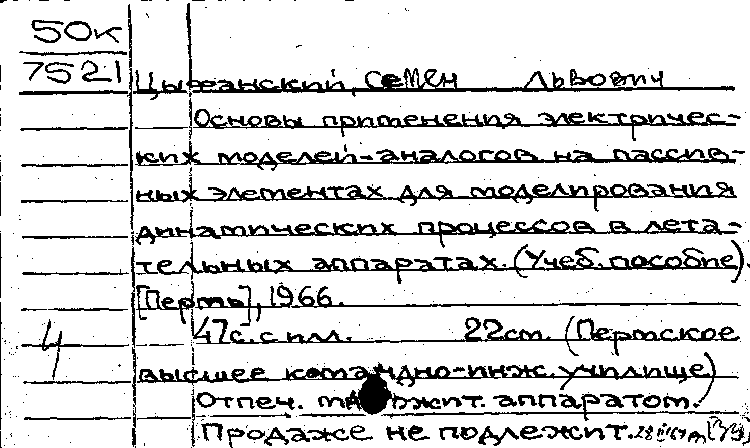 50к
7521
Цыжанский, Семен Львович
Основы применения электричес-
ких моделей-аналогов на пассив-
ных элементах для моделирования
динамических процессов в лета-
тельных аппаратах. (Учеб. пособие).
[Пермь], 1966.
4
47с. с илл. 22см. (Пермское
высшее командно-инж. училище)
Отпеч. аппаратом.
Продаже не подлежит.